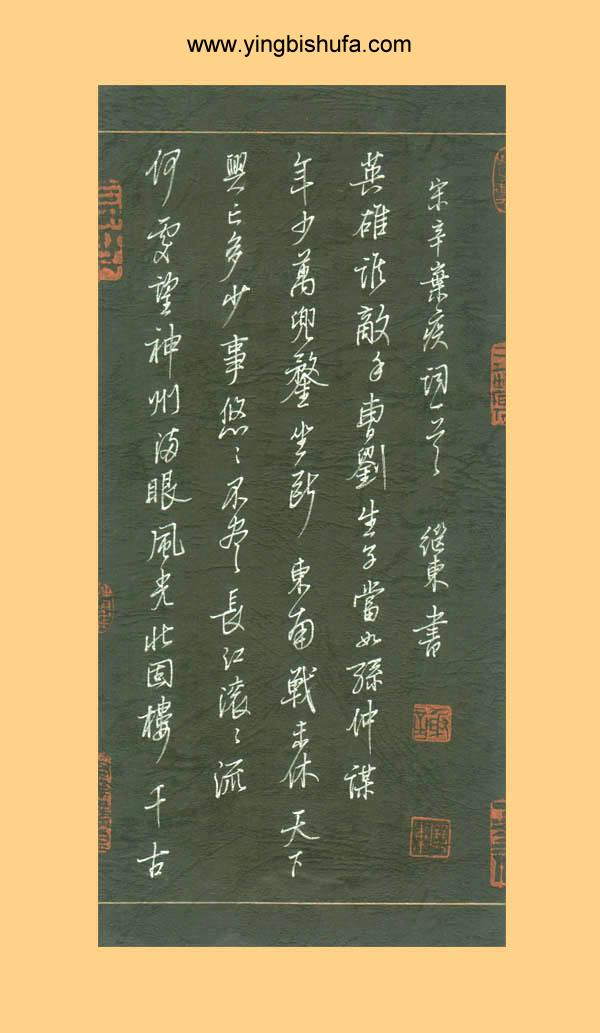 www.yingbishufa.com
何處望神州滿眼風光北固樓 千古
興亡多少事悠〻不盡長江滾〻流
年少萬兜鍪坐斷東南戰未休 天下
英雄誰敵手曹劉生子當如孫仲謀
宋辛棄疾詞一首 繼東書